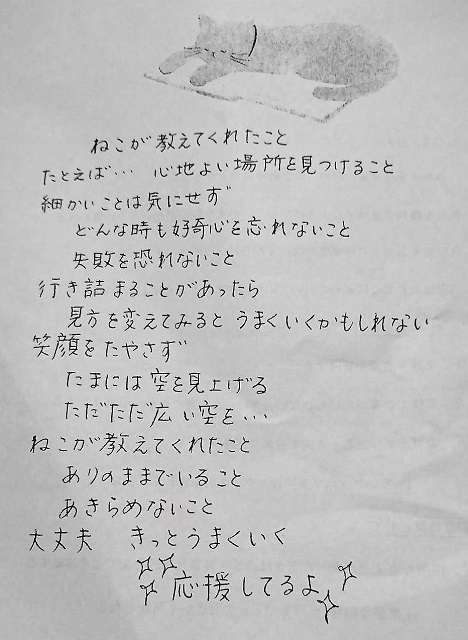 ねこが教えてくれたこと
たとえば… 心地よい場所を見つけること
細かいことは気にせず
どんな時も好奇心を忘れないこと
失敗を恐れないこと
行き詰まることがあったら
見方を変えてみると うまくいくかもしれない
笑顔をたやさず
たまには空を見上げる
ただただ広い空を…
ねこが教えてくれたこと
ありのままでいること
あきらめないこと
大丈夫 きっとうまくいく
応援してるよ